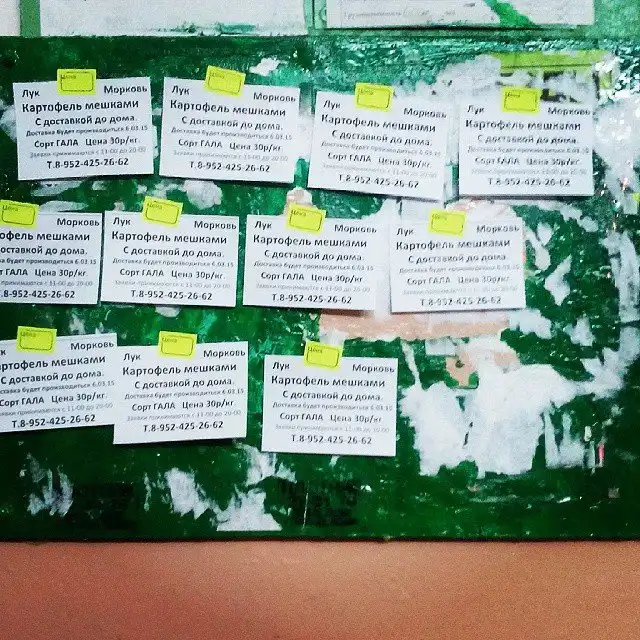 Цена
Лук Морковь
Картофель мешками
С доставкой до дома.
Доставка будет производиться 6.03.15
Сорт ГАЛА Цена 30р/кг
Заявки принимаются с 11-00 до 20-00
Т.8-952-425-26-62
Цена
Лук Морковь
Картофель мешками
С доставкой до дома.
Доставка будет производиться 6.03.15
Сорт ГАЛА Цена 30р/кг.
Заявки принимаются с 11-00 до 20-00
Т.8-952-425-26-62
Цена
Лук Морковь
Картофель мешками
С доставкой до дома.
Доставка будет производиться 6.03.15
Сорт ГАЛА Цена 30р/кг.
Заявки принимаются с 11-00 до 20-00
Т.8-952-425-26-62
Цена
Лук Морковь
Картофель мешками
С доставкой до дома.
Доставка будет производиться 6.03.15
Сорт ГАЛА Цена 30р/кг.
Заявки принимаются с 11-00 до 20-00
Т.8-952-425-26-62
Цена
Морковь
офель мешками
доставкой до дома.
будет производиться 6.03.15
т ГАЛА Цена 30р/кг.
принимаются с 11-00 до 20-00
.8-952-425-26-62
Цена
Лук Морковь
Картофель мешками
С доставкой до дома.
Доставка будет производиться 6.03.15
Сорт ГАЛА Цена 30р/кг.
Заявки принимаются с 11-00 до 20-00
Т.8-952-425-26-62
Цена
Лук Морковь
Картофель мешками
С доставкой до дома.
Доставка будет производиться 6.03.15
Сорт ГАЛА Цена 30р/кг.
Заявки принимаются с 11-00 до 20-00
Т.8-952-425-26-62
Цена
Лук Морковь
Картофель мешками
С доставкой до дома.
Доставка будет производиться 6.03.15
Сорт ГАЛА Цена 30р/кг.
Заявки принимаются с 11-00 до 20-00
Т.8-952-425-26-62
Цена
Морковь
ртофель мешками
С доставкой до дома.
будет производиться 6.03.15
Сорт ГАЛА Цена 30р/кг.
Заявки принимаются с 11-00 до 20-00
Т.8-952-425-26-62
Цена
Лук Морковь
Картофель мешками
С доставкой до дома.
Доставка будет производиться 6.03.15
Сорт ГАЛА Цена 30р/кг.
Заявки принимаются с 11-00 до 20-00
Т.8-952-425-26-62
Цена
Лук Морковь
Картофель мешками
С доставкой до дома.
Доставка будет производиться 6.03.15
Сорт ГАЛА Цена 30р/кг.
Заявки принимаются с 11-00 до 20-00
Т.8-952-425-26-62